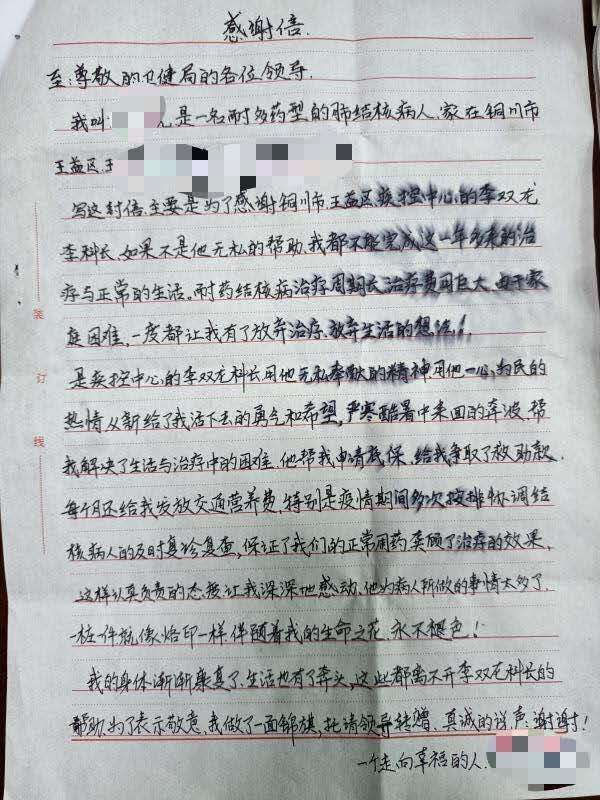 感谢信.
至:尊敬的卫健局的各位领导.
我叫 是一名耐多药型的肺结核病人.家在铜川市
王益区.王
写这封信.主要是为了感谢铜川市王益区疾控中心的李双龙
李科长.如果不是他无私的帮助.我都不能完成这一年多来的治
疗与正常的生活。耐药结核病治疗周期长.治疗费用巨大.由于家
庭困难,一度都让我有了放弃治疗.放弃生活的想法!
是疾控中心的李双龙科长用他无私奉献的精神用他一心为民的
热情从新给了我活下去的勇气和希望,严寒酷暑中来回的奔波.帮
我解决了生活与治疗中的困难.他帮我申请底保.给我争取了救助款.
每个月还给我发放交通营养费.特别是疫情期间多次按排协调结
核病人的及时复诊复查,保证了我们的正常用药兼顾了治疗的效果,
这样认真负责的态度让我深深地感动.他为病人所做的事情太多了.
一桩一件就像烙印一样.伴随着我的生命之花.永不褪色!
我的身体渐渐康复了.生活也有了奔头.这些都离不开李双龙科长的
帮助.为了表示敬意.我做了一面锦旗,托请领导转赠.真诚的说声:谢谢!
一个走向幸福的人.
装
订
线